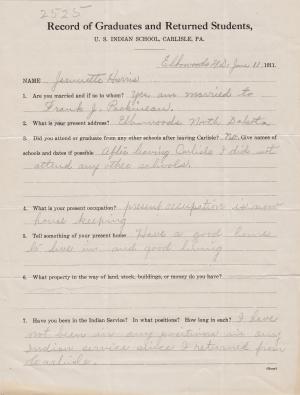 2525
Record of Graduates and Returned Students,
U. S. INDIAN SCHOOL, CARLISLE, PA.
Elbowoods N.D. June 11 1911.
NAME Jennette Harris
1. Are you married and if so to whom? Yes am married to
Frank J. Packineau.
2. What is your present address? Elbowoods North Dakota
3. Did you attend or graduate from any other schools after leaving Carlisle? No. Give names of
schools and dates if possible After having Carlisle I did not
attend any other schools.
4. What is your present occupation? present occupation is now
house keeping
5. Tell something of your present home Have a good home
to live in and good living
6. What property in the way of land, stock, buildings, or money do you have?
7. Have you been in the Indian Service? In what positions? How long in each? I have
not been in any positions in any
Indian service since I returned from
Carlisle.
(Over)